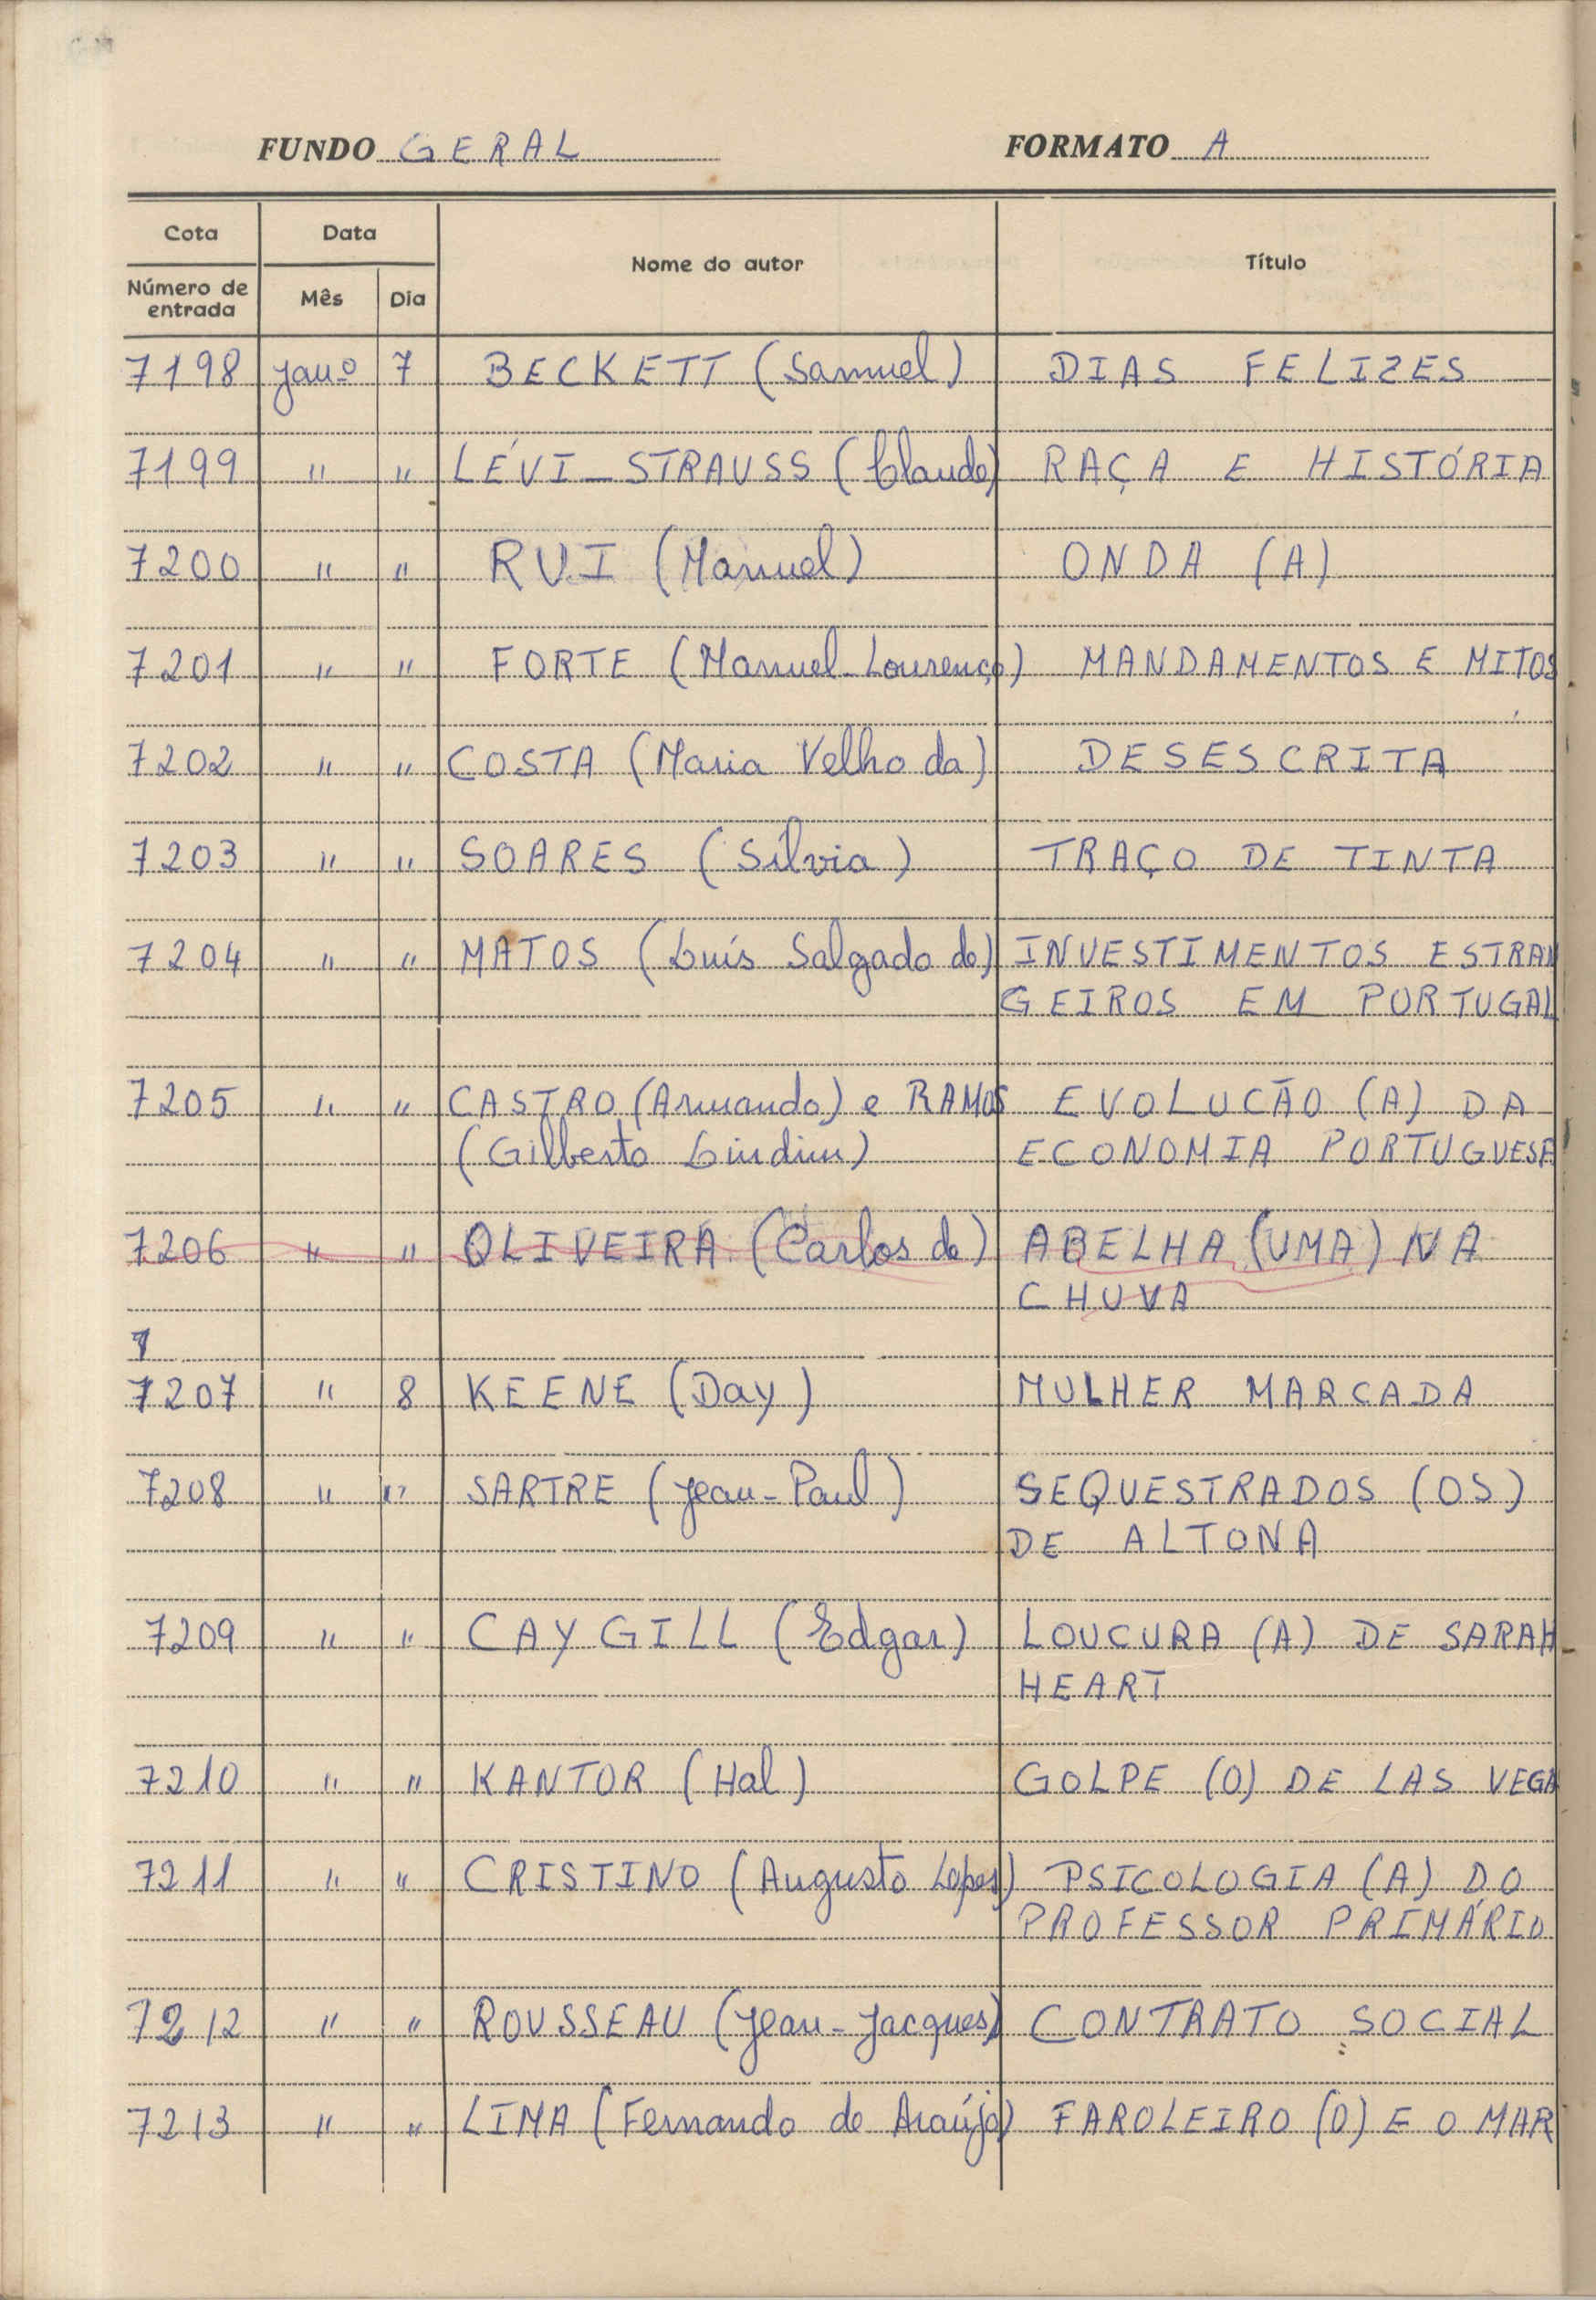 FUNDO GERAL FORMATO A
Cota Data Nome do autor Título
Número de entrada Mês Dia
7198 Janº 7 BECKETT (Samuel) DIAS FELIZES
7199 " " LÉVI-STRAUSS (Claude) RAÇA E HISTÓRIA
7200 " " RUI (Manuel) ONDA (A)
7201 " " FORTE (Manuel Lourenço) MANDAMENTOS E MITOS
7202 " " COSTA (Maria Velho da) DESESCRITA
7203 " " SOARES (Sílvia) TRAÇO DE TINTA
7204 " " MATOS (Luís Salgado de) INVESTIMENTOS ESTRAN
GEIROS EM PORTUGAL
7205 " " CASTRO (Armando) e RAMOS EVOLUCÃO (A) DA
(Gilberto Lindim) ECONOMIA PORTUGUESA
7206 " " OLIVEIRA (Carlos de) ABELHA (UMA) NA
CHUVA
7
7207 " 8 KEENE (Day) MULHER MARCADA
7208 " " SARTRE (Jean-Paul) SEQUESTRADOS (OS)
DE ALTONA
7209 " " CAYGILL (Edgar) LOUCURA (A) DE SARAH
HEART
7210 " " KANTOR (Hal) GOLPE (O) DE LAS VEGA
7211 " " CRISTINO (Augusto Lopes) PSICOLOGIA (A) DO
PROFESSOR PRIMÁRIO
7212 " " ROUSSEAU (Jean-Jacques) CONTRATO SOCIAL
7213 " " LIMA (Fernando de Araújo) FAROLEIRO (O) E O MAR